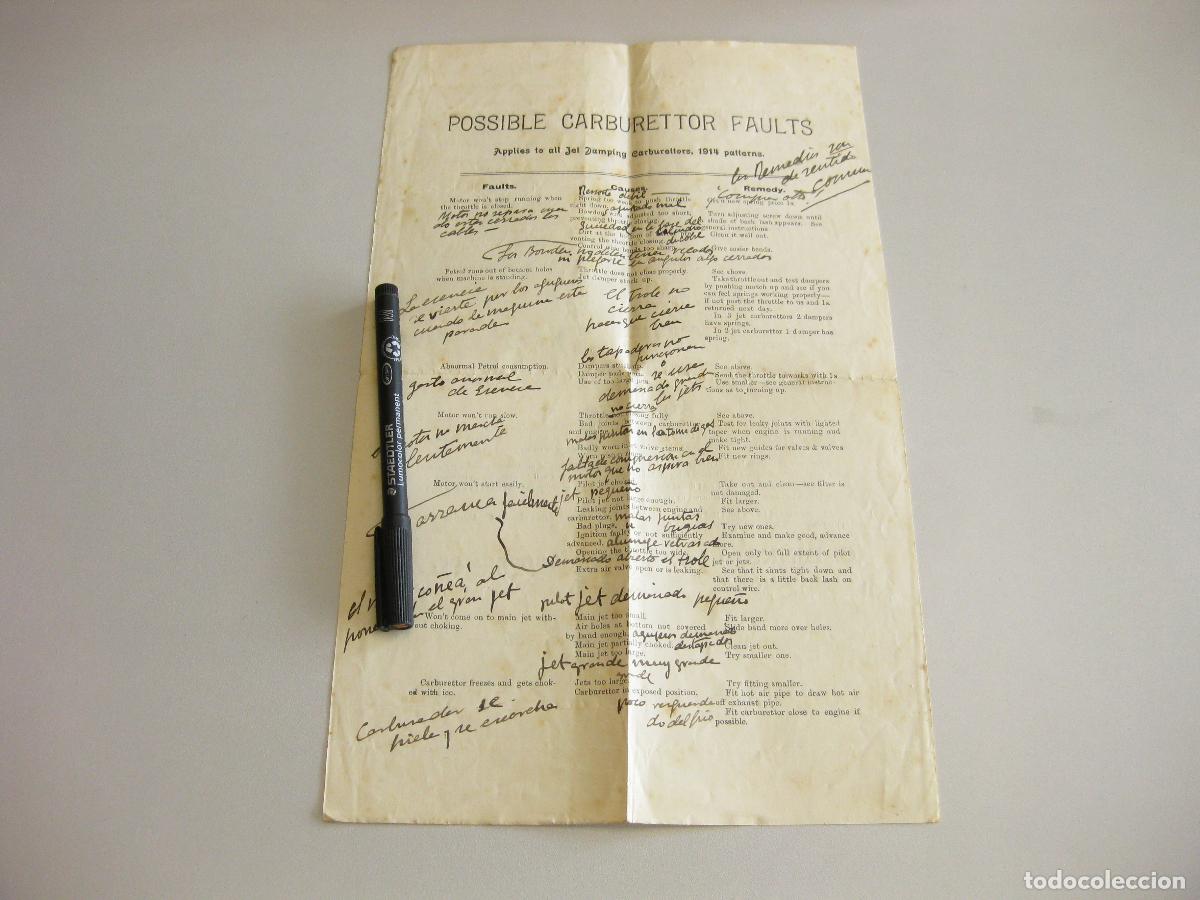 POSSIBLE CARBURETTOR FAULTS
Applies to all Jet Damping Carburettors, 1914 patterns.
los Remedios son
de sentido
comun
Faults.
Causes.
Remedy.
Motor won't stop running when
the throttle is closed.
Motor no separa
do estan cerrados los
cables
Resorte debil
Spring too weak to push throttle
right down,
ajustado mal
Bowden adjusted too short,
preventing throttle closing.
Suciedad en la base del
cilindro
Dirt at the bottom of
venting the throttle closing.
de cobre
Control wire bends too sharp.
Comprar otro!
new spring price 1s.
Turn adjusting screw down until
shade of back lash appears. See
general instructions
Clean it well out.
Give easier bends.
Los Bowden no deben tener recodos
ni plegarse en angulos algo cerrados
Petrol runs out of bottom holes
when machine is standing.
La esencia
se vierte por los agugeros
cuando la maquina esta
parada
Throttle does not close properly.
Jet damper stuck up.
el trole no
cierra
hace que cierre
bien
See above.
Take throttle out and test dampers
by pushing match up and see if you
can feel springs working properly—
if not post the throttle to us and 1s.
returned next day.
In 3 jet carburettors 2 dampers
have springs.
In 2 jet carburettor 1 damper has
spring.
Abnormal Petrol consumption.
gasto anormal
de Esencia
los tapaderas no
funcionan
Dampers
o
Damper
se usa
Use of too large jets.
demasiado grande
los jets
no cierra
See above.
Send the throttle to works with 1s
Use smaller—see general instruc-
tions as to turning up.
Motor won't run slow.
motor no marcha
lentamente
Throttle not closing fully
Bad joints between carburettor
and engine
malas juntas en la toma de gas
Badly worn inlet valve stems.
falta de compresion en el
motor que no aspira bien
See above.
Test for leaky joints with lighted
taper when engine is running and
make tight.
Fit new guides for valves & valves
Fit new rings.
Motor, won't start easily.
arranca facilmente
Pilot jet choked
jet pequeño
Pilot jet not large enough.
Leaking joints between engine and
carburettor.
malas juntas
Bad plugs.
bugias
Ignition faulty or not sufficiently
advanced.
alumage retrasado
Opening the throttle too wide.
Demasiado abierto el trole
Extra air valve open or is leaking.
Take out and clean—see filter is
not damaged.
Fit larger.
See above.
Try new ones.
Examine and make good, advance
more.
Open only to full extent of pilot
jet or jets.
See that it shuts tight down and
that there is a little back lash on
control wire.
al
el gran jet
Won't come on to main jet with-
out choking.
pilot jet demasiado pequeño
Main jet too small.
Air holes at bottom not covered
by band enough.
agugeros demasiado
destapados
Main jet partially choked.
Main jet too large.
jet grande muy grande
Fit larger.
Slide band more over holes.
Clean jet out.
Try smaller one.
Carburettor freezes and gets chok-
ed with ice.
Carburador se
hiela y se escarcha
Jets too large.
Carburettor in exposed position.
poco resguarda
do del frio
Try fitting smaller.
Fit hot air pipe to draw hot air
off exhaust pipe.
Fit carburettor close to engine if
possible.
STAEDTLER
Lumocolor permanent
todocoleccion